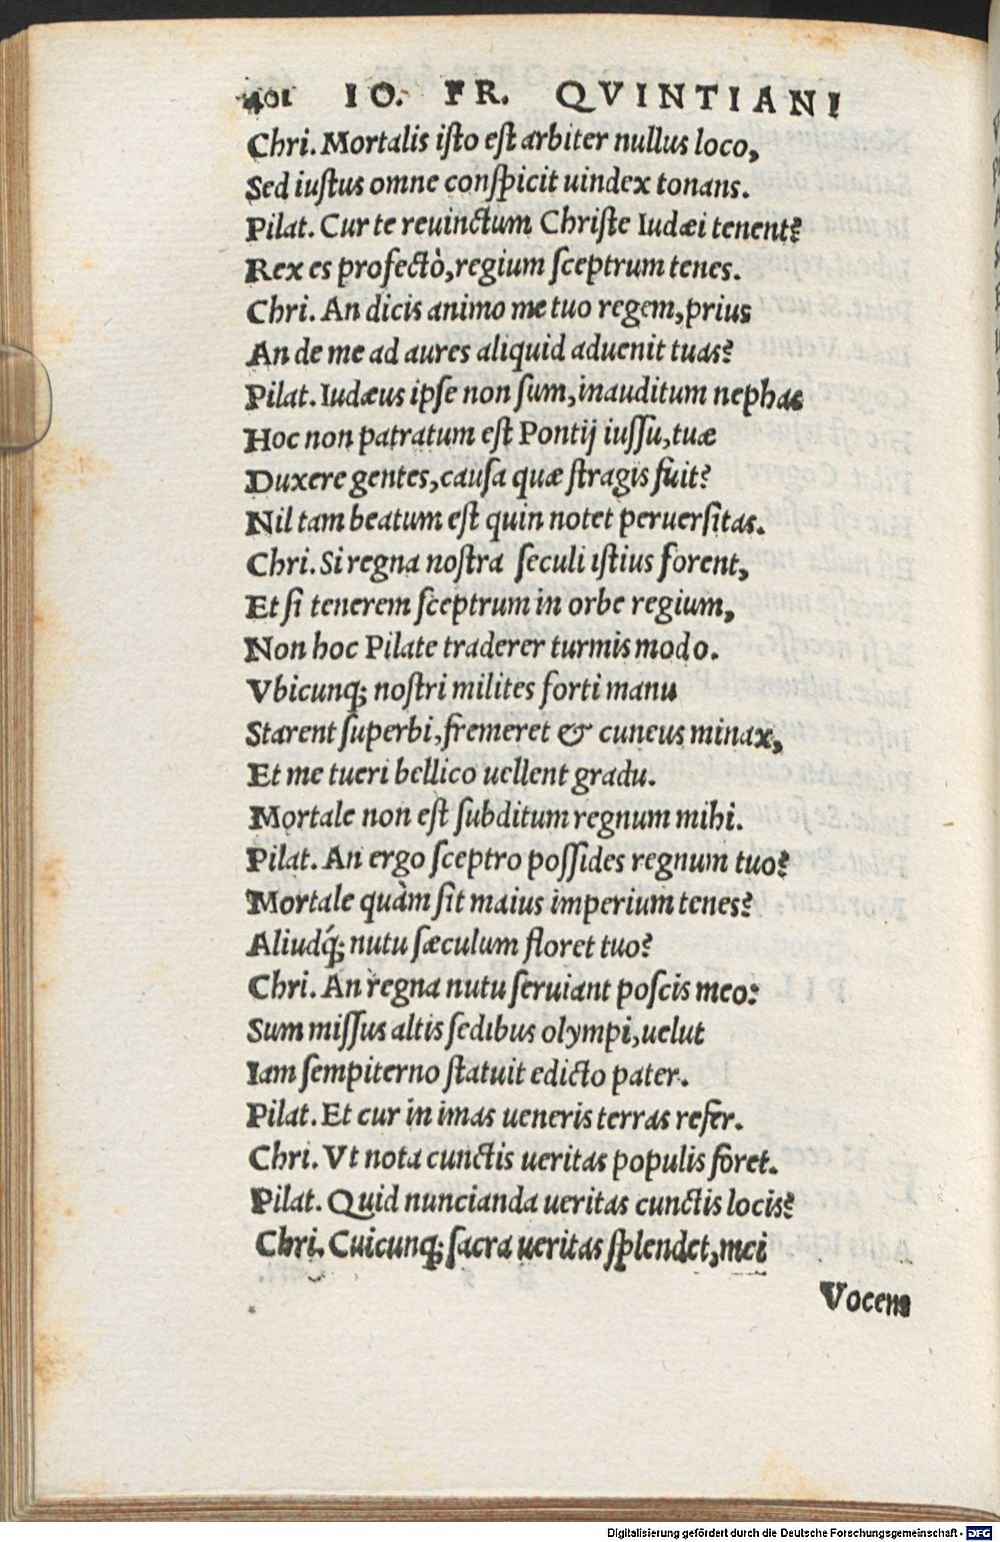 401 IO. FR. QVINTIANI
Chri. Mortalis iſto eſt arbiter nullus loco,
Sed iuſtus omne conſpicit uindex tonans.
Pilat. Cur te reuinctum Chriſte Iudæi tenent?
Rex es profectò, regium ſceptrum tenes.
Chri. An dicis animo me tuo regem, prius
An de me ad aures aliquid aduenit tuas?
Pilat. Iudæus ipſe non ſum, inauditum nephas
Hoc non patratum eſt Pontij iuſſu, tuæ
Duxere gentes, cauſa quæ ſtragis fuit?
Nil tam beatum eſt quin notet peruerſitas.
Chri. Si regna noſtra ſeculi iſtius forent,
Et ſi tenerem ſceptrum in orbe regium,
Non hoc Pilate traderer turmis modo.
Vbicunq; noſtri milites forti manu
Starent ſuperbi, fremeret & cuneus minax,
Et me tueri bellico uellent gradu.
Mortale non eſt ſubditum regnum mihi.
Pilat. An ergo ſceptro poſſides regnum tuo?
Mortale quàm ſit maius imperium tenes?
Aliudq́; nutu ſæculum floret tuo?
Chri. An regna nutu ſeruiant poſcis meo?
Sum miſſus altis ſedibus olympi, uelut
Iam ſempiterno ſtatuit edicto pater.
Pilat. Et cur in imas ueneris terras refer.
Chri. Vt nota cunctis ueritas populis foret.
Pilat. Quid nuncianda ueritas cunctis locis?
Chri. Cuicunq; ſacra ueritas ſplendet, mei
Vocem
Digitalisierung gefördert durch die Deutsche Forschungsgemeinschaft - DFG